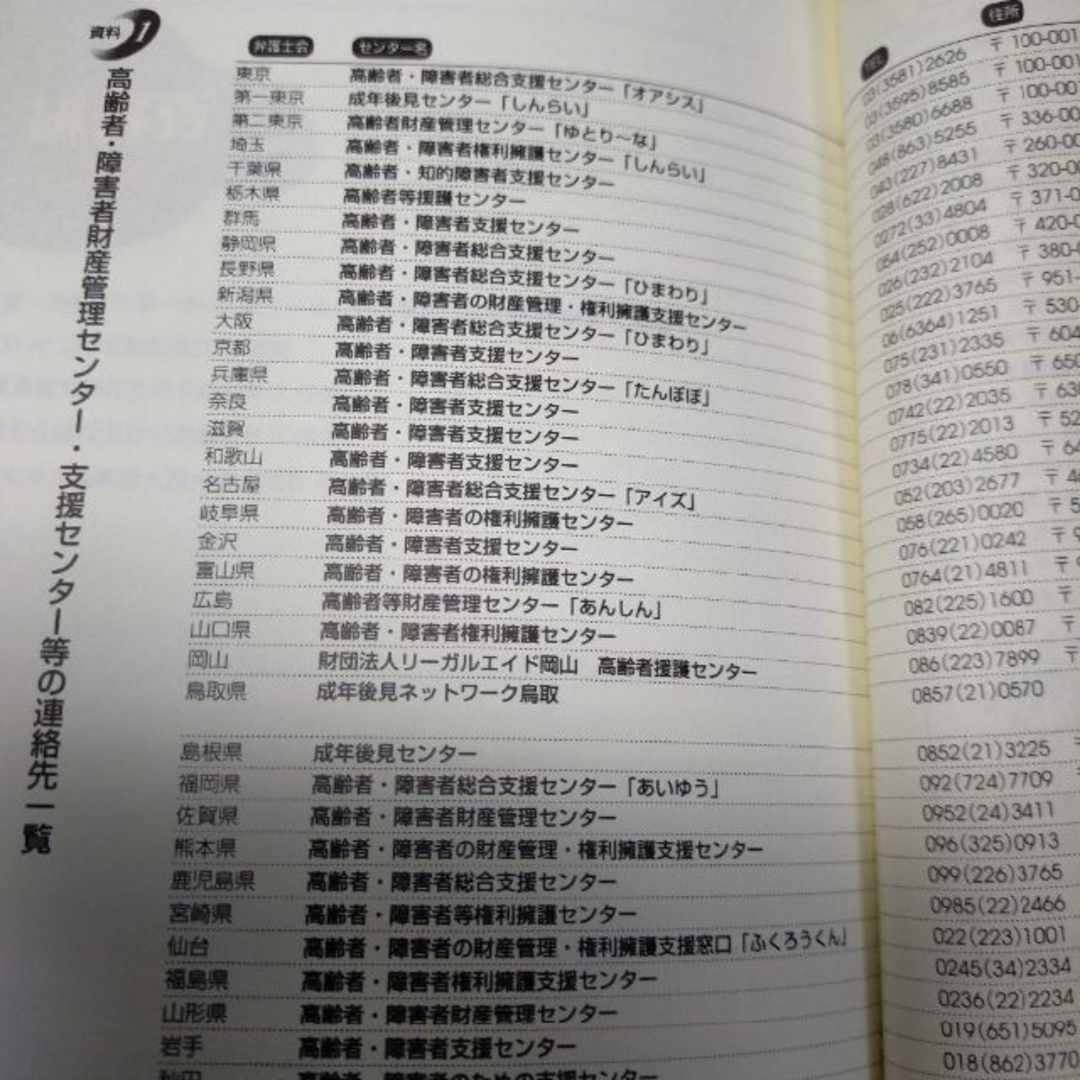 資料 1
高齢者・障害者財産管理センター・支援センター等の連絡先一覧
弁護士会 センター名 TEL 住所
東京 高齢者・障害者総合支援センター「オアシス」 03(3581)2626 〒100-001
第一東京 成年後見センター「しんらい」 03(3595)8585 〒100-001
第二東京 高齢者財産管理センター「ゆとり〜な」 03(3580)6688 〒100-001
埼玉 高齢者・障害者権利擁護センター「しんらい」 048(863)5255 〒336-00
千葉県 高齢者・知的障害者支援センター 043(227)8431 〒260-00
栃木県 高齢者等援護センター 028(622)2008 〒320-08
群馬 高齢者・障害者支援センター 0272(33)4804 〒371-0
静岡県 高齢者・障害者総合支援センター 054(252)0008 〒420-0
長野県 高齢者・障害者総合支援センター「ひまわり」 026(232)2104 〒380-
新潟県 高齢者・障害者の財産管理・権利擁護支援センター 025(222)3765 〒951-
大阪 高齢者・障害者総合支援センター「ひまわり」 06(6364)1251 〒530-
京都 高齢者・障害者支援センター 075(231)2335 〒604
兵庫県 高齢者・障害者総合支援センター「たんぽぽ」 078(341)0550 〒650
奈良 高齢者・障害者支援センター 0742(22)2035 〒630
滋賀 高齢者・障害者支援センター 0775(22)2013 〒52
和歌山 高齢者・障害者支援センター 0734(22)4580 〒64
名古屋 高齢者・障害者総合支援センター「アイズ」 052(203)2677 〒4
岐阜県 高齢者・障害者の権利擁護センター 058(265)0020 〒5
金沢 高齢者・障害者支援センター 076(221)0242 〒9
富山県 高齢者・障害者の権利擁護センター 0764(21)4811 〒
広島 高齢者等財産管理センター「あんしん」 082(225)1600 〒
山口県 高齢者・障害者権利擁護センター 0839(22)0087 〒
岡山 財団法人リーガルエイド岡山 高齢者援護センター 086(223)7899 〒
鳥取県 成年後見ネットワーク鳥取 0857(21)0570
島根県 成年後見センター 0852(21)3225
福岡県 高齢者・障害者総合支援センター「あいゆう」 092(724)7709
佐賀県 高齢者・障害者財産管理センター 0952(24)3411
熊本県 高齢者・障害者の財産管理・権利擁護支援センター 096(325)0913
鹿児島県 高齢者・障害者総合支援センター 099(226)3765
宮崎県 高齢者・障害者等権利擁護センター 0985(22)2466
仙台 高齢者・障害者の財産管理・権利擁護支援窓口「ふくろうくん」 022(223)1001
福島県 高齢者・障害者権利擁護支援センター 0245(34)2334
山形県 高齢者・障害者財産管理センター 0236(22)2234
岩手 高齢者・障害者支援センター 019(651)5095
秋田 高齢者・障害者のための支援センター 018(862)3770